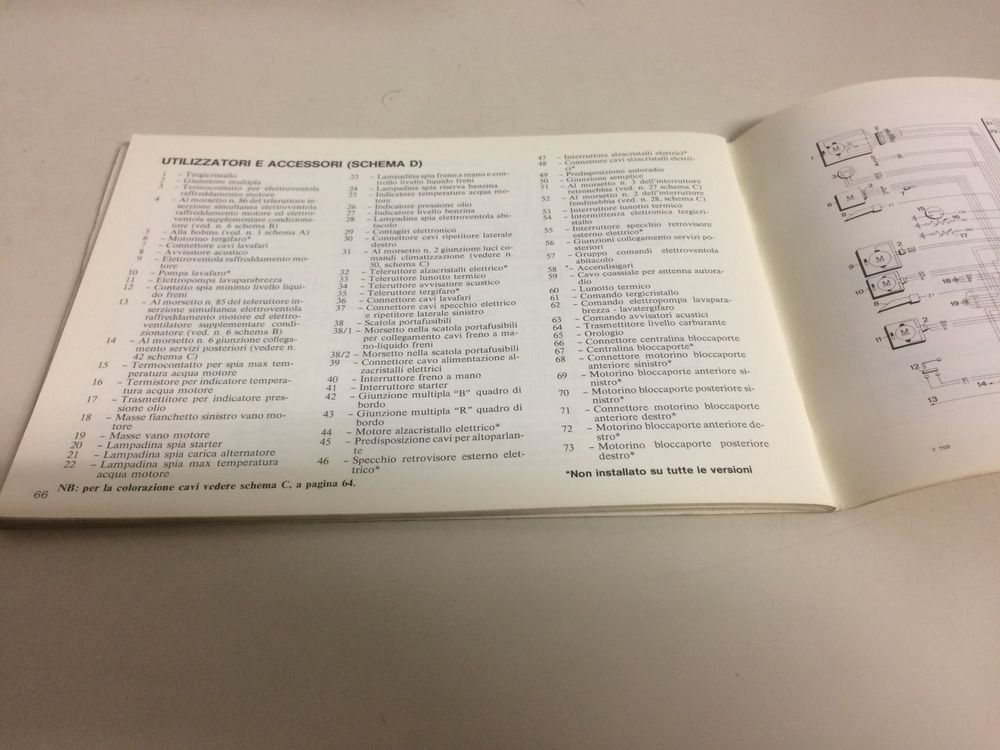 UTILIZZATORI E ACCESSORI (SCHEMA D)
1 - Tergicristallo
2 - Giunzione multipla
3 - Termocontatto per elettroventola
raffreddamento motore
4 - Al morsetto n. 86 del teleruttore in-
serzione simultanea elettroventola
raffreddamento motore ed elettro-
ventola supplementare condiziona-
tore (ved. n. 6 schema B)
5 - Alla bobina (ved. n. 1 schema A)
6 - Motorino tergifaro*
7 - Connettore cavi lavafari
8 - Avvisatore acustico
9 - Elettroventola raffreddamento mo-
tore
10 - Pompa lavafaro*
11 - Elettropompa lavaparabrezza
12 - Contatto spia minimo livello liqui-
do freni
13 - Al morsetto n. 85 del teleruttore in-
serzione simultanea elettroventola
raffreddamento motore ed elettro-
ventilatore supplementare condi-
zionatore (ved. n. 6 schema B)
14 - Al morsetto n. 6 giunzione collega-
mento servizi posteriori (vedere n.
42 schema C)
15 - Termocontatto per spia max tem-
peratura acqua motore
16 - Termistore per indicatore tempera-
tura acqua motore
17 - Trasmettitore per indicatore pres-
sione olio
18 - Masse fianchetto sinistro vano mo-
tore
19 - Masse vano motore
20 - Lampadina spia starter
21 - Lampadina spia carica alternatore
22 - Lampadina spia max temperatura
acqua motore
23 - Lampadina spia freno a mano e con-
trollo livello liquido freni
24 - Lampadina spia riserva benzina
25 - Indicatore temperatura acqua mo-
tore
26 - Indicatore pressione olio
27 - Indicatore livello benzina
28 - Lampadina spia elettroventola abi-
tacolo
29 - Contagiri elettronico
30 - Connettore cavi ripetitore laterale
destro
31 - Al morsetto n. 2 giunzione luci co-
mandi climatizzazione (vedere n.
50, schema C)
32 - Teleruttore alzacristalli elettrici*
33 - Teleruttore lunotto termico
34 - Teleruttore avvisatore acustico
35 - Teleruttore tergifaro*
36 - Connettore cavi lavafari
37 - Connettore cavi specchio elettrico
e ripetitore laterale sinistro
38 - Scatola portafusibili
38/1 - Morsetto nella scatola portafusibili
per collegamento cavi freno a ma-
no-liquido freni
38/2 - Morsetto nella scatola portafusibili
39 - Connettore cavo alimentazione al-
zacristalli elettrici
40 - Interruttore freno a mano
41 - Interruttore starter
42 - Giunzione multipla "B" quadro di
bordo
43 - Giunzione multipla "R" quadro di
bordo
44 - Motore alzacristallo elettrico*
45 - Predisposizione cavi per altoparlan-
te
46 - Specchio retrovisore esterno elet-
trico*
47 - Interruttore alzacristalli elettrici*
48 - Connettore cavi alzacristalli elettri-
ci*
49 - Predisposizione autoradio
50 - Giunzione semplice
51 - Al morsetto n. 3 dell'interruttore
retronebbia (ved. n. 27 schema C)
52 - Al morsetto n. 2 dell'interruttore
fendinebbia (ved. n. 28, schema C)
53 - Interruttore lunotto termico
54 - Intermittenza elettronica tergicri-
stallo
55 - Interruttore specchio retrovisore
esterno elettrico*
56 - Giunzioni collegamento servizi po-
steriori
57 - Gruppo comandi elettroventola
abitacolo
58 *- Accendisigari
59 - Cavo coassiale per antenna autora-
dio
60 - Lunotto termico
61 - Comando tergicristallo
62 - Comando elettropompa lavapara-
brezza - lavatergifaro
63 - Comando avvisatori acustici
64 - Trasmettitore livello carburante
65 - Orologio
66 - Connettore centralina bloccaporte
67 - Centralina bloccaporte*
68 - Connettore motorino bloccaporte
anteriore sinistro*
69 - Motorino bloccaporte anteriore si-
nistro*
70 - Motorino bloccaporte posteriore si-
nistro*
71 - Connettore motorino bloccaporte
anteriore destro*
72 - Motorino bloccaporte anteriore de-
stro*
73 - Motorino bloccaporte posteriore
destro*
*Non installato su tutte le versioni
66
NB: per la colorazione cavi vedere schema C, a pagina 64.
1
2
M
3
8
15
16
17
9
2
M
10
M
18
19
11
M
12
13
14
Y 703